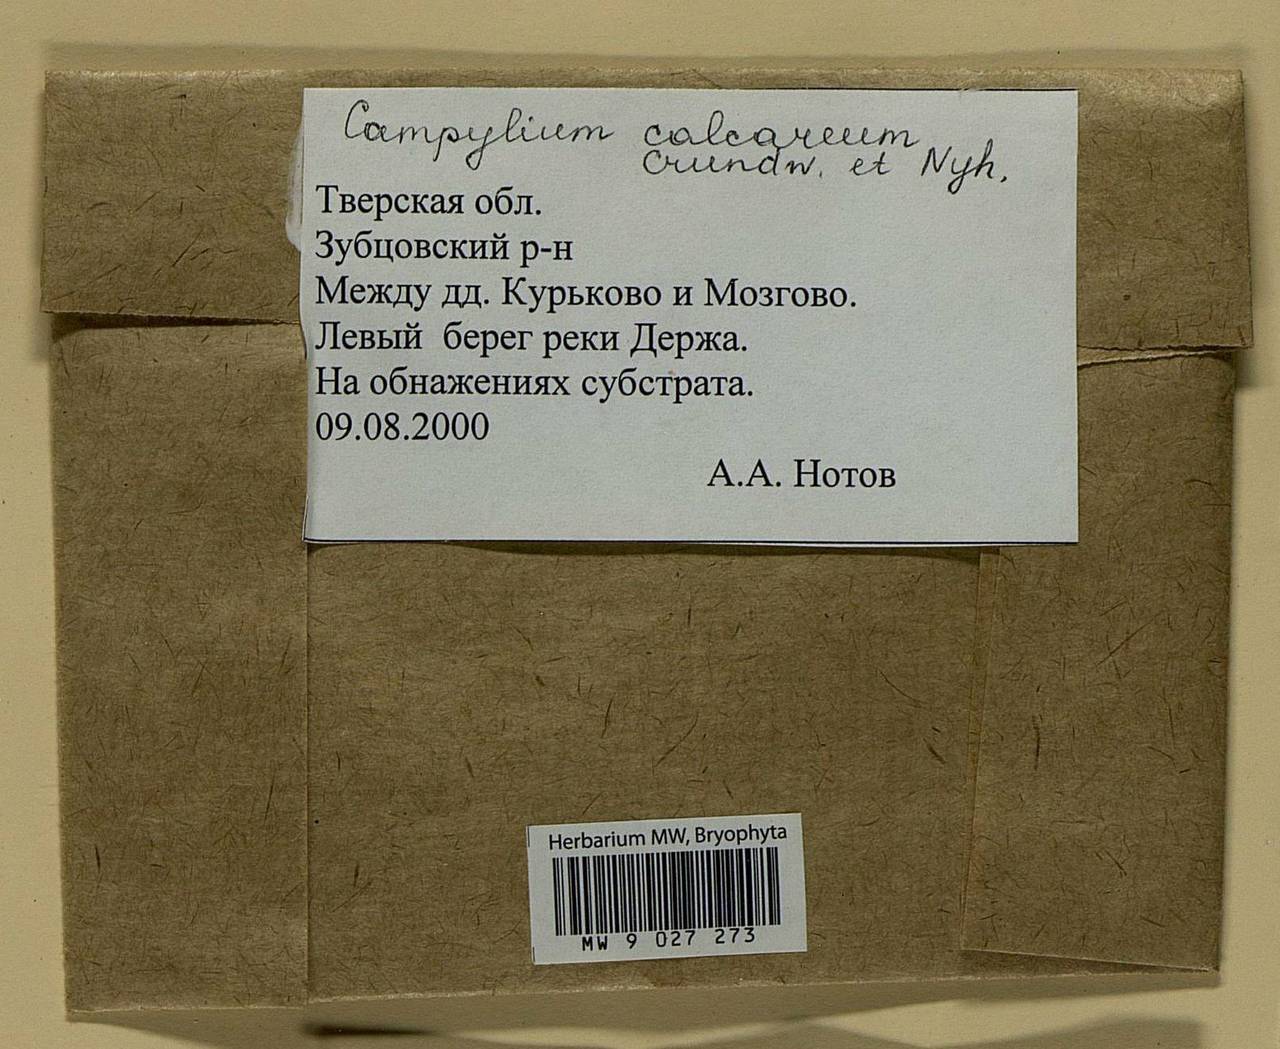 Campylium calcareum
Crundw. et Nyh.
Тверская обл.
Зубцовский р-н
Между дд. Курьково и Мозгово.
Левый берег реки Держа.
На обнажениях субстрата.
09.08.2000
А.А. Нотов
Herbarium MW, Bryophyta
MW 9 027 273